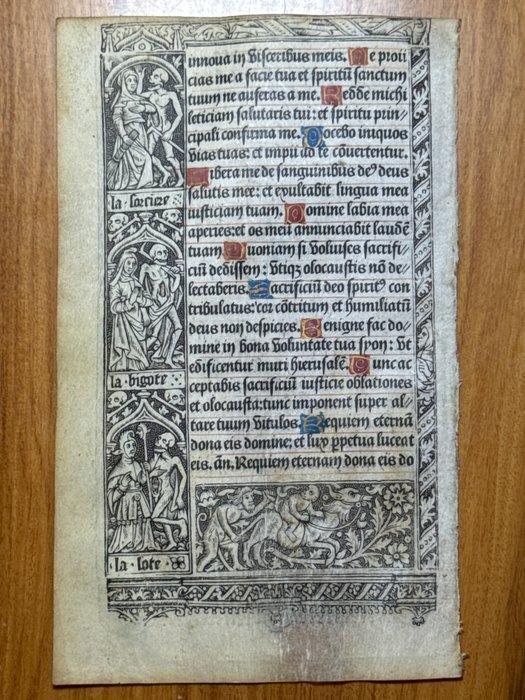 innoua in visceribus meis. Ne proii
cias me a facie tua et spiritū sanctum
tuum ne auferas a me. Redde michi
leticiam salutaris tui: et spiritu prin-
cipali confirma me. Docebo iniquos
vias tuas: et impii ad te cōuertentur.
Libera me de sanguinibus deꝰ deus
salutis mee: et exultabit lingua mea
iusticiam tuam. Domine labia mea
aperies: et os meū annunciabit laudē
tuam Quoniam si voluises sacrifi-
ciū dedissem: vtiqꝫ olocaustis nō de-
lectaberis. Sacrificiū deo spiritꝰ con
tribulatus: cor cōtritum et humiliatū
deus non despicies. Benigne fac do-
mine in bona voluntate tua syon: vt
edificentur muri hierusalē. Tunc ac
ceptabis sacrificiū iusticie oblationes
et olocausta: tunc imponent super al-
tare tuum vitulos. Requiem eternā
dona eis domine: et lux ꝑpetua luceat
eis. añ. Requiem eternam dona eis do
la sorciere
la bigote
la sote